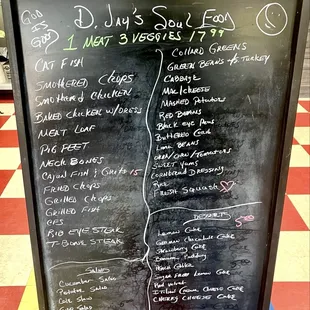 GOD
IS
GOOD
D. Jay's Soul Food
1 MEAT 3 VEGGIES 17 99
CAT FISH
SMOTHERED CHOPS
SMOTHERED CHICKEN
BAKED CHICKEN W/DRESS
MEAT LOAF
PIG FEET
NECK BONES
CAJUN FISH & GRITS 15
FRIED CHOPS
GRILLED CHOPS
GRILLED FISH
CFS
RIB EYE STEAK
T-BONE STEAK
SALADS
CUCUMBER SALAD
POTATOE SALAD
COLE SLAW
COLLARD GREENS
GREEN BEANS w/s TURKEY
CABBAGE
MAC/CHEESE
MASHED POTATOES
RED BEANS
BLACK EYE PEAS
BUTTERED CORN
LIMA BEANS
OKRA/CORN/TOMATOES
SWEET YAMS
CORNBREAD DRESSING
RICE
FRESH SQUASH
DESSERTS
5.00
LEMON CAKE
GERMAN CHOCOLATE CAKE
STRAWBERRY CAKE
BANANA PUDDING
PEACH COBBLER
SUGAR FREE LEMON CAKE
RED VELVET
ITALIAN CREAM CHEESE CAKE
CHERRY CHEESE CAKE